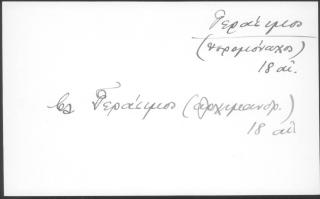 Γεράσιμος
(ιερομόναχος)
18 αἰ.
βλ Γεράσιμος (ἀρχιμανδρ.)
18 αἰ